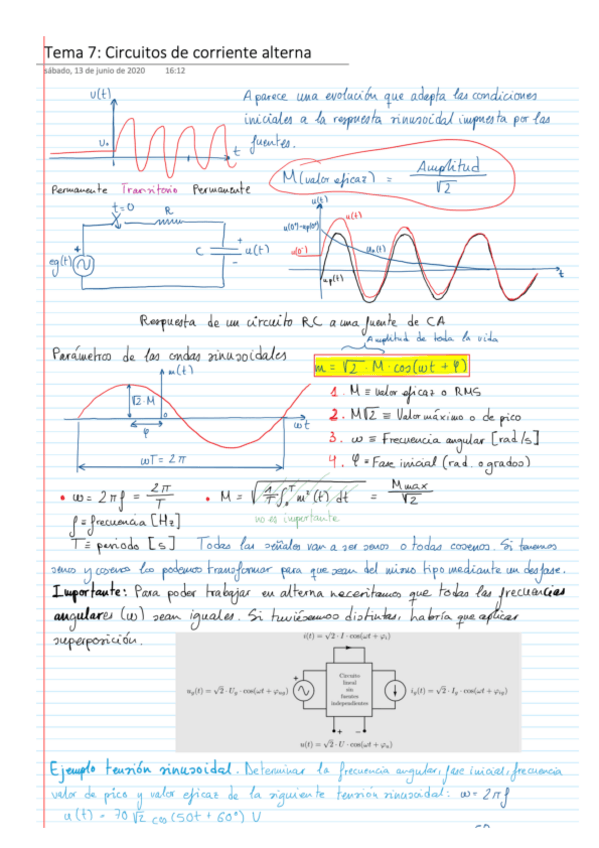 Tema 7: Circuitos de corriente alterna
sábado, 13 de junio de 2020 16:12
u(t)
U₀
t
Permanente Transitorio Permanente
Aparece una evolución que adapta las condiciones
iniciales a la respuesta sinusoidal impuesta por las
fuentes.
M(valor eficaz) = Amplitud / √2
t=0
R
C
+
u(t)
−
+
eg(t)
u(t)
u(0⁺)-up(0⁺)
u(t)
u(0⁻)
up(t)
t
Respuesta de un circuito RC a una fuente de CA
Amplitud de toda la vida
Parámetros de las ondas sinusoidales
m = √2 · M · cos(ωt + φ)
m(t)
√2·M
φ
0
ωt
ωT = 2π
1. M ≡ Valor eficaz o RMS
2. M√2 ≡ Valor máximo o de pico
3. ω ≡ Frecuencia angular [rad/s]
4. φ = Fase inicial (rad. o grados)
• ω = 2πf = 2π/T • M = √(1/T ∫₀ᵀ m²(t) dt) = Mmax/√2
no es importante
f = frecuencia [Hz]
T = periodo [s] Todas las señales van a ser senos o todas cosenos. Si tenemos
senos y cosenos los podemos transformar para que sean del mismo tipo mediante un desfase.
Importante: Para poder trabajar en alterna necesitamos que todas las frecuencias
angulares (ω) sean iguales. Si tuviésemos distintas, habría que aplicar
superposición.
i(t) = √2 · I · cos(ωt + φi)
ug(t) = √2 · Ug · cos(ωt + φug)
+
Circuito
lineal
sin
fuentes
independientes
ig(t) = √2 · Ig · cos(ωt + φig)
+ −
u(t) = √2 · U · cos(ωt + φu)
Ejemplo tensión sinusoidal. Determinar la frecuencia angular, fase inicial, frecuencia
valor de pico y valor eficaz de la siguiente tensión sinusoidal: ω = 2πf
u(t) = 70√2 cos(50t + 60°) V